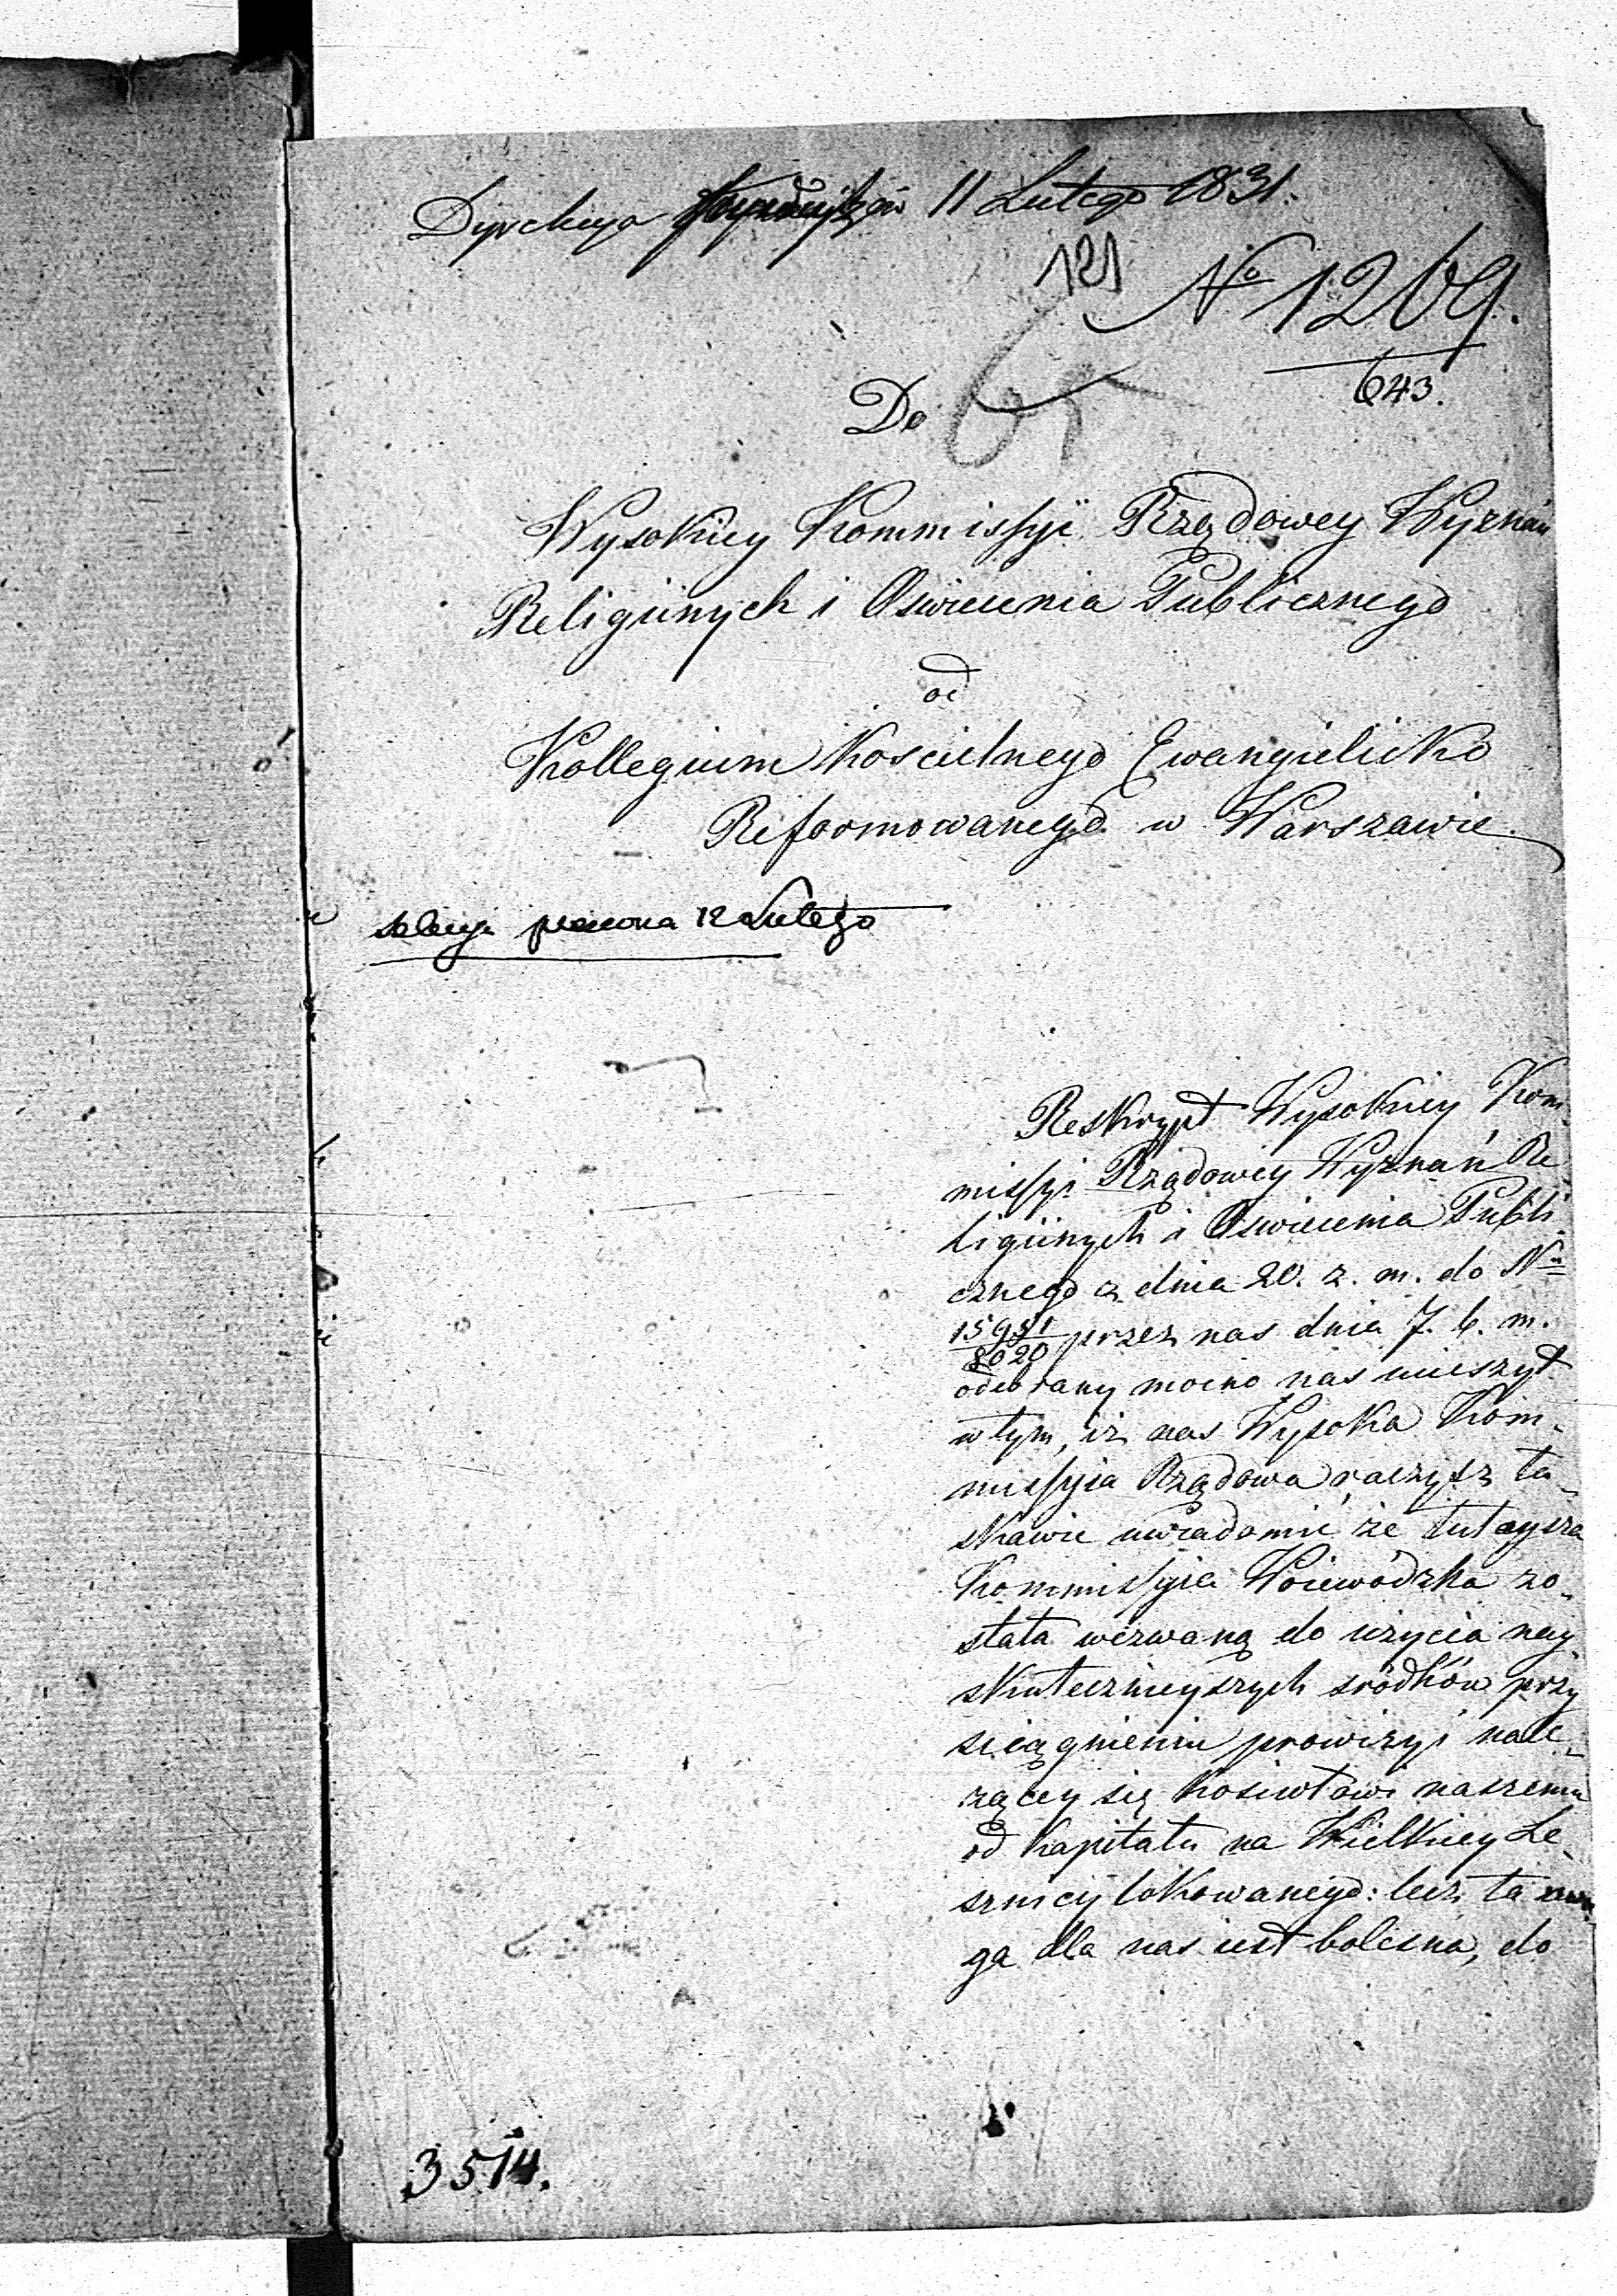 Dyrekcya 11 Lutego 1831.
121
No 1269.
643.
Do
Wysokiey Kommissyi Rządowey Wyznań
Religiinych i Oswiecenia Publicznego
od
Kollegium Koscielnego Ewangielicko
Reformowanego w Warszawie.
prawna 12 Lutego
Reskrypt Wysokiey Kom
missyi Rządowey Wyznań Re
ligiinych i Oswiecenia Publi
cznego z dnia 20. z. m. do No
15951
8020 przez nas dnia 7. b. m.
odebrany mocno nas cieszył
w tym, iż nas Wysoka Kom-
missyia Rządowa raczysz ła-
skawie uwiadomić, że tuteysza
Kommissyia Woiewódzka zo-
stała wezwaną do użycia nay
skutecznieyszych sródków przy
sciągnieniu prowizyi nale-
żącey się kosciołowi naszemu
od kapitału na Wielkiey Le-
sznicy lokowanego: lecz ta
ga dla nas iest bolesna, do
3514.